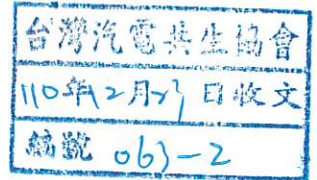 台灣汽電共生協會
110年12月 日收文
編號 063-2